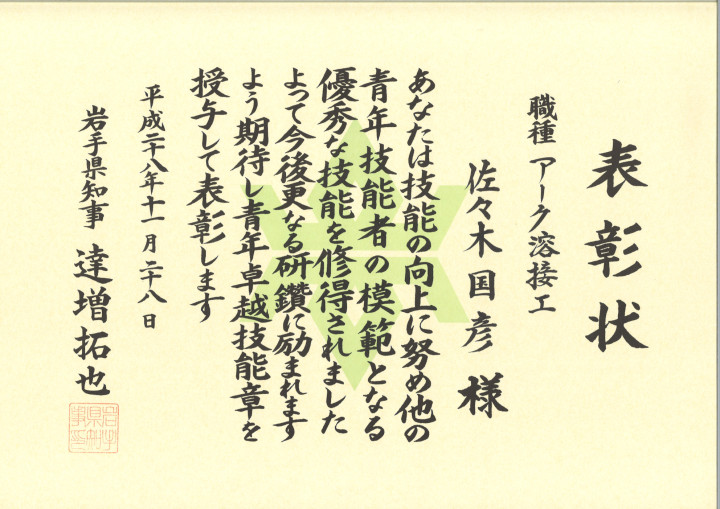 表彰状
職種 アーク溶接工
佐々木国彦 様
あなたは技能の向上に努め他の
青年技能者の模範となる
優秀な技能を修得されました
よって今後更なる研鑽に励まれます
よう期待し青年卓越技能章を
授与して表彰します
平成二十八年十一月二十八日
岩手県知事 達増拓也
岩手県知事印